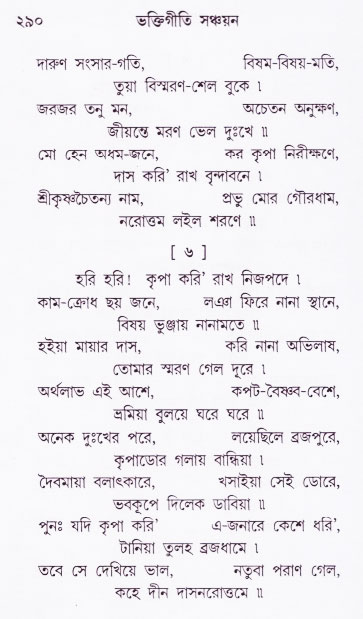 ২৯০ ভক্তিগীতি সঞ্চয়ন
দারুণ সংসার-গতি, বিষম-বিষয়-মতি,
তুয়া বিস্মরণ-শেল বুকে ।
জরজর তনু মন, অচেতন অনুক্ষণ,
জীয়ন্তে মরণ ভেল দুঃখে ॥
মো হেন অধম-জনে, কর কৃপা নিরীক্ষণে,
দাস করি' রাখ বৃন্দাবনে ।
শ্রীকৃষ্ণচৈতন্য নাম, প্রভু মোর গৌরধাম,
নরোত্তম লইল শরণে ॥
[ ৬ ]
হরি হরি! কৃপা করি' রাখ নিজপদে ।
কাম-ক্রোধ ছয় জনে, লঞা ফিরে নানা স্থানে,
বিষয় ভুঞ্জায় নানামতে ॥
হইয়া মায়ার দাস, করি নানা অভিলাষ,
তোমার স্মরণ গেল দূরে ।
অর্থলাভ এই আশে, কপট-বৈষ্ণব-বেশে,
ভ্রমিয়া বুলয়ে ঘরে ঘরে ॥
অনেক দুঃখের পরে, লয়েছিলে ব্রজপুরে,
কৃপাডোর গলায় বান্ধিয়া ।
দৈবমায়া বলাৎকারে, খসাইয়া সেই ডোরে,
ভবকূপে দিলেক ডারিয়া ॥
পুনঃ যদি কৃপা করি' এ-জনারে কেশে ধরি',
টানিয়া তুলহ ব্রজধামে ।
তবে সে দেখিয়ে ভাল, নতুবা পরাণ গেল,
কহে দীন দাসনরোত্তমে ॥